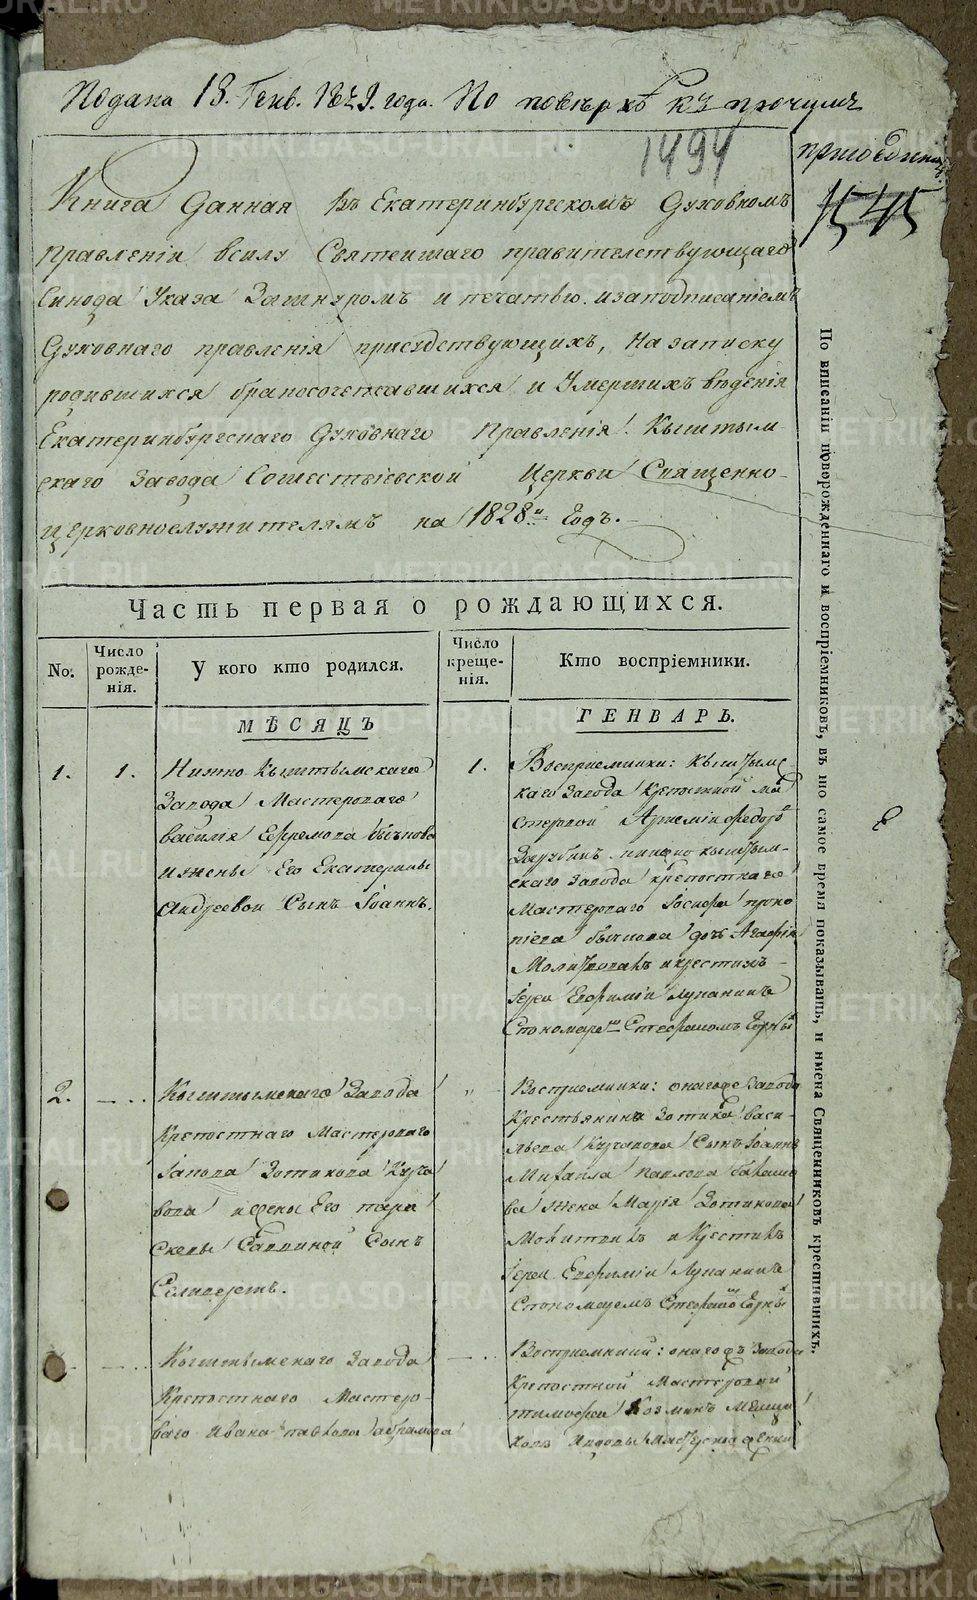 Подана 18. Генв. 1829. года. По поверкѣ къ прочимъ
приоединен
1494
1545
Книга Данная Въ Екатеринбургскомъ Духовномъ
Правленіи всилу Святейшаго правителствующаго
Синода Указа Зашнуромъ и печатью изаподписаніемъ
Духовнаго правленія присудствующихъ, На записку
родившихся бракосочетавшихся и Умершихъ вѣденія
Екатеринбургскаго Духовнаго Правленія Кыштым-
скаго Завода Сошествіевской Церкви Священно-
церковнослужителямъ на 1828й Годъ.
Часть первая о рождающихся.
No. Число рожде-нія. У кого кто родился. Число креще-нія. Кто воспріемники.
МѢСЯЦЪ ГЕНВАРЬ.
1. 1. Нижно Кыштымскаго
Завода Мастероваго
Василья Ефремова
ижены Его Екатерины
Андреевой Сынъ Іоаннъ.
1. Восприемники: Кыштымс
каго Завода Крепостной ма
стеровой Артемій Федоро
Зарубинъ нижно кыштым-
скаго Завода крепостнаго
Мастероваго Іосифа проко
піева дочь Агафія
Молитвовалъ икрестилъ
Іерей Евфимій Лупанинъ
Спономаремъ Стефаномъ
2. Кыштымскаго Завода
Крепостнаго Мастероваго
Іакова Зотикова
ижены Его пара
скевы Саввиной Сынъ
Селиверстъ.
Восприемники: онагоже Завода
Крестьянина Зотика васи-
льева Сынъ Іоаннъ
Михаила павлова
ва Жена Марія Зотикова
Молитвилъ и Крестилъ
Іерей Евфимій Лупанинъ
Спономаремъ Стефаномъ
Кыштымскаго Завода
Крепостнаго Мастеро-
ваго Ивана павлова абрамова
Восприемники: онагожъ Завода
Крепостной Мастеровой
тимофей Козминъ
По вписаніи новорожденнаго и воспріемниковъ, въ то самое время показывать, и имена Священниковъ крестившихъ.
METRIKI.GASO-URAL.RU